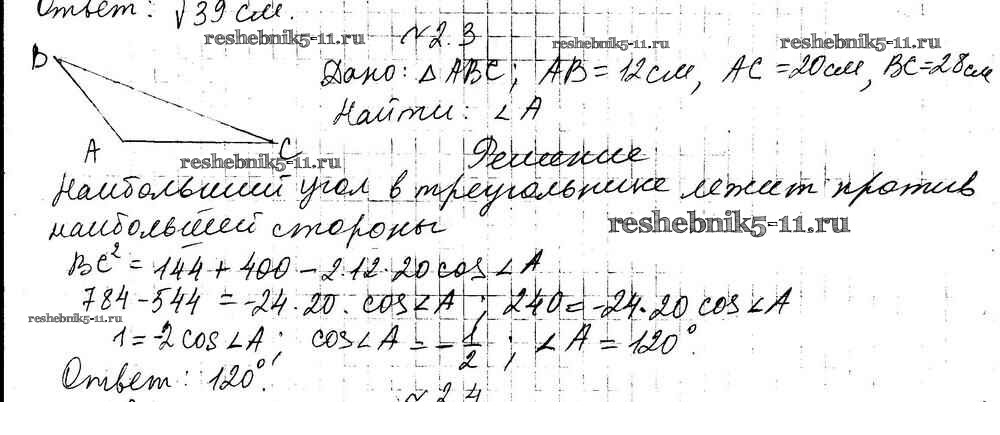 Ответ: √39 см.
reshebnik5-11.ru
№2.3
reshebnik5-11.ru
reshebnik5-11.ru
B
Дано: △ABC; AB=12см, AC=20см, BC=28см
Найти: ∠A
A
C
reshebnik5-11.ru
Решение
Наибольший угол в треугольнике лежит против
наибольшей стороны
reshebnik5-11.ru
BC² = 144 + 400 - 2·12·20 cos ∠A
784 - 544 = -24·20· cos∠A ; 240 = -24·20 cos ∠A
reshebnik5-11.ru
1 = -2 cos ∠A; cos∠A = -1/2 ; ∠A = 120°.
Ответ: 120°.
№2.4